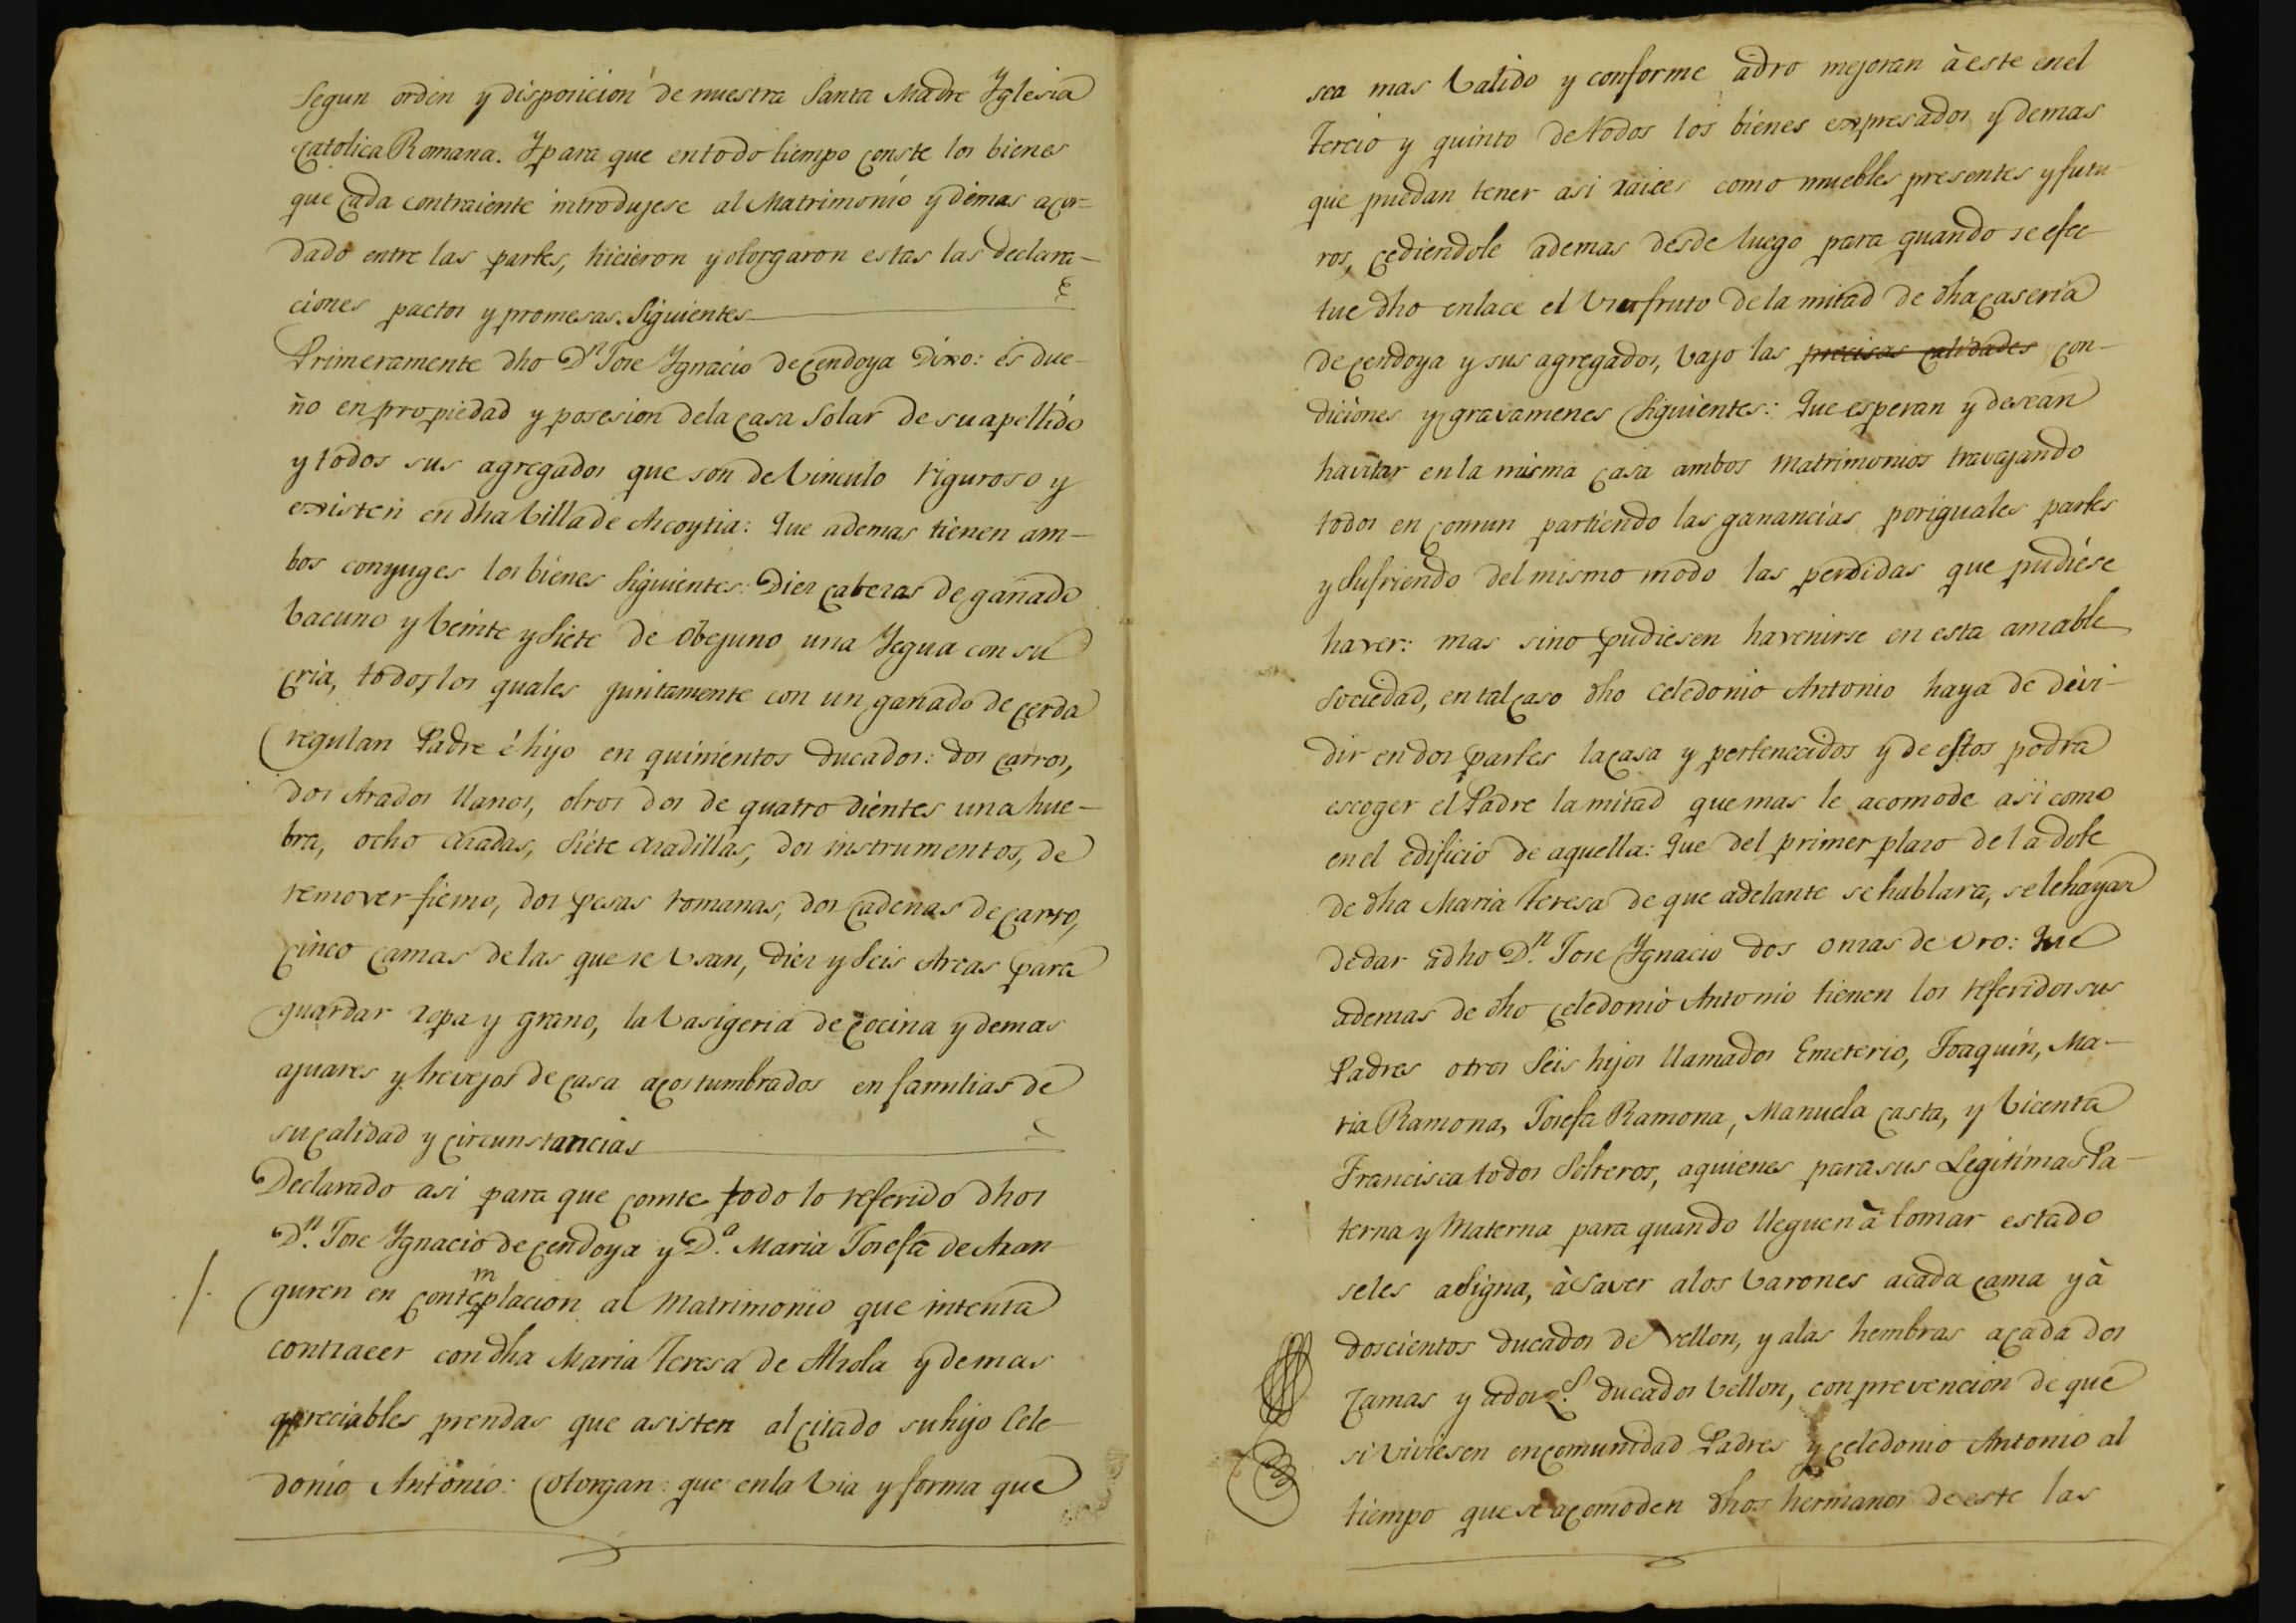 Segun orden y disposicion de nuestra Santa Madre Yglesia
Catolica Romana. Y para que en todo tiempo conste los bienes
que cada contraiente introdujese al Matrimonio y demas acor-
dado entre las partes, hicieron y otorgaron estas las declara-
ciones pactos y promesas. Siguientes
Primeramente dho Dn. Jose Ygnacio de Cendoya Dixo: es due-
ño en propiedad y posesion dela Casa Solar de su apellido
y todos sus agregados que son de Vinculo riguroso y
existen en dha Villa de Ascoytia: Que ademas tienen am-
bos conyuges los bienes Siguientes: Diez cabezas de ganado
Vacuno y Veinte y Siete de Obejuno una Yegua con su
cria, todos los quales juntamente con un ganado de cerda
regulan Padre é hijo en quinientos ducados: dos carros,
dos Arados llanos, otros dos de quatro dientes una hue-
bra, ocho azadas, Siete azadillas, dos instrumentos, de
remover fiemo, dos pesas romanas, dos cadenas de carro,
Cinco camas de las que se Usan, diez y Seis Arcas para
guardar ropa y grano, la Vasigeria de cocina y demas
ajuares y trevejos de casa acostumbrados en familias de
su calidad y circunstancias
Declarado asi para que conste todo lo referido dhos
Dn. Jose Ygnacio de Cendoya y Da. Maria Josefa de Aran-
guren en contemplacion al Matrimonio que intenta
contraeer con dha Maria Teresa de Alzola y demas
apreciables prendas que asisten al citado su hijo Cele-
donio Antonio: Otorgan: que en la Via y forma que
sea mas Valido y conforme à dro mejoran à este en el
Tercio y quinto de todos los bienes expresados y demas
que puedan tener asi raices como muebles presentes y futu-
ros, cediendole ademas desde luego para quando se efec-
tue dho enlace el Usufruto de la mitad de dha caseria
de Cendoya y sus agregados, vajo las precisas calidades con-
diciones y gravamenes Siguientes: Que esperan y desean
havitar en la misma casa ambos Matrimonios travajando
todos en comun partiendo las ganancias por iguales partes
y Sufriendo del mismo modo las perdidas que pudiese
haver: mas sino pudiesen havenirse en esta amable
Sociedad, en tal caso dho Celedonio Antonio haya de divi-
dir en dos partes la casa y pertenecidos y de estos podra
escoger el Padre la mitad que mas le acomode asi como
en el edificio de aquella: Que del primer plazo de la dote
de dha Maria Teresa de que adelante se hablara, se le hayan
de dar à dho Dn. Jose Ygnacio dos onzas de oro: Que
ademas de dho Celedonio Antonio tienen los referidos sus
Padres otros Seis hijos llamados Emeterio, Joaquin, Ma-
ria Ramona, Josefa Ramona, Manuela Casta, y Vicenta
Francisca todos Solteros, a quienes para sus Legitimas Pa-
terna y Materna para quando lleguen à tomar estado
seles asigna, à saver a los Varones a cada cama y à
doscientos ducados de Vellon, y a las hembras a cada dos
camas y a dosz.s ducados Vellon, con prevencion de que
si Viviesen en comunidad Padres y Celedonio Antonio al
tiempo que se acomoden dhos hermanos de este las